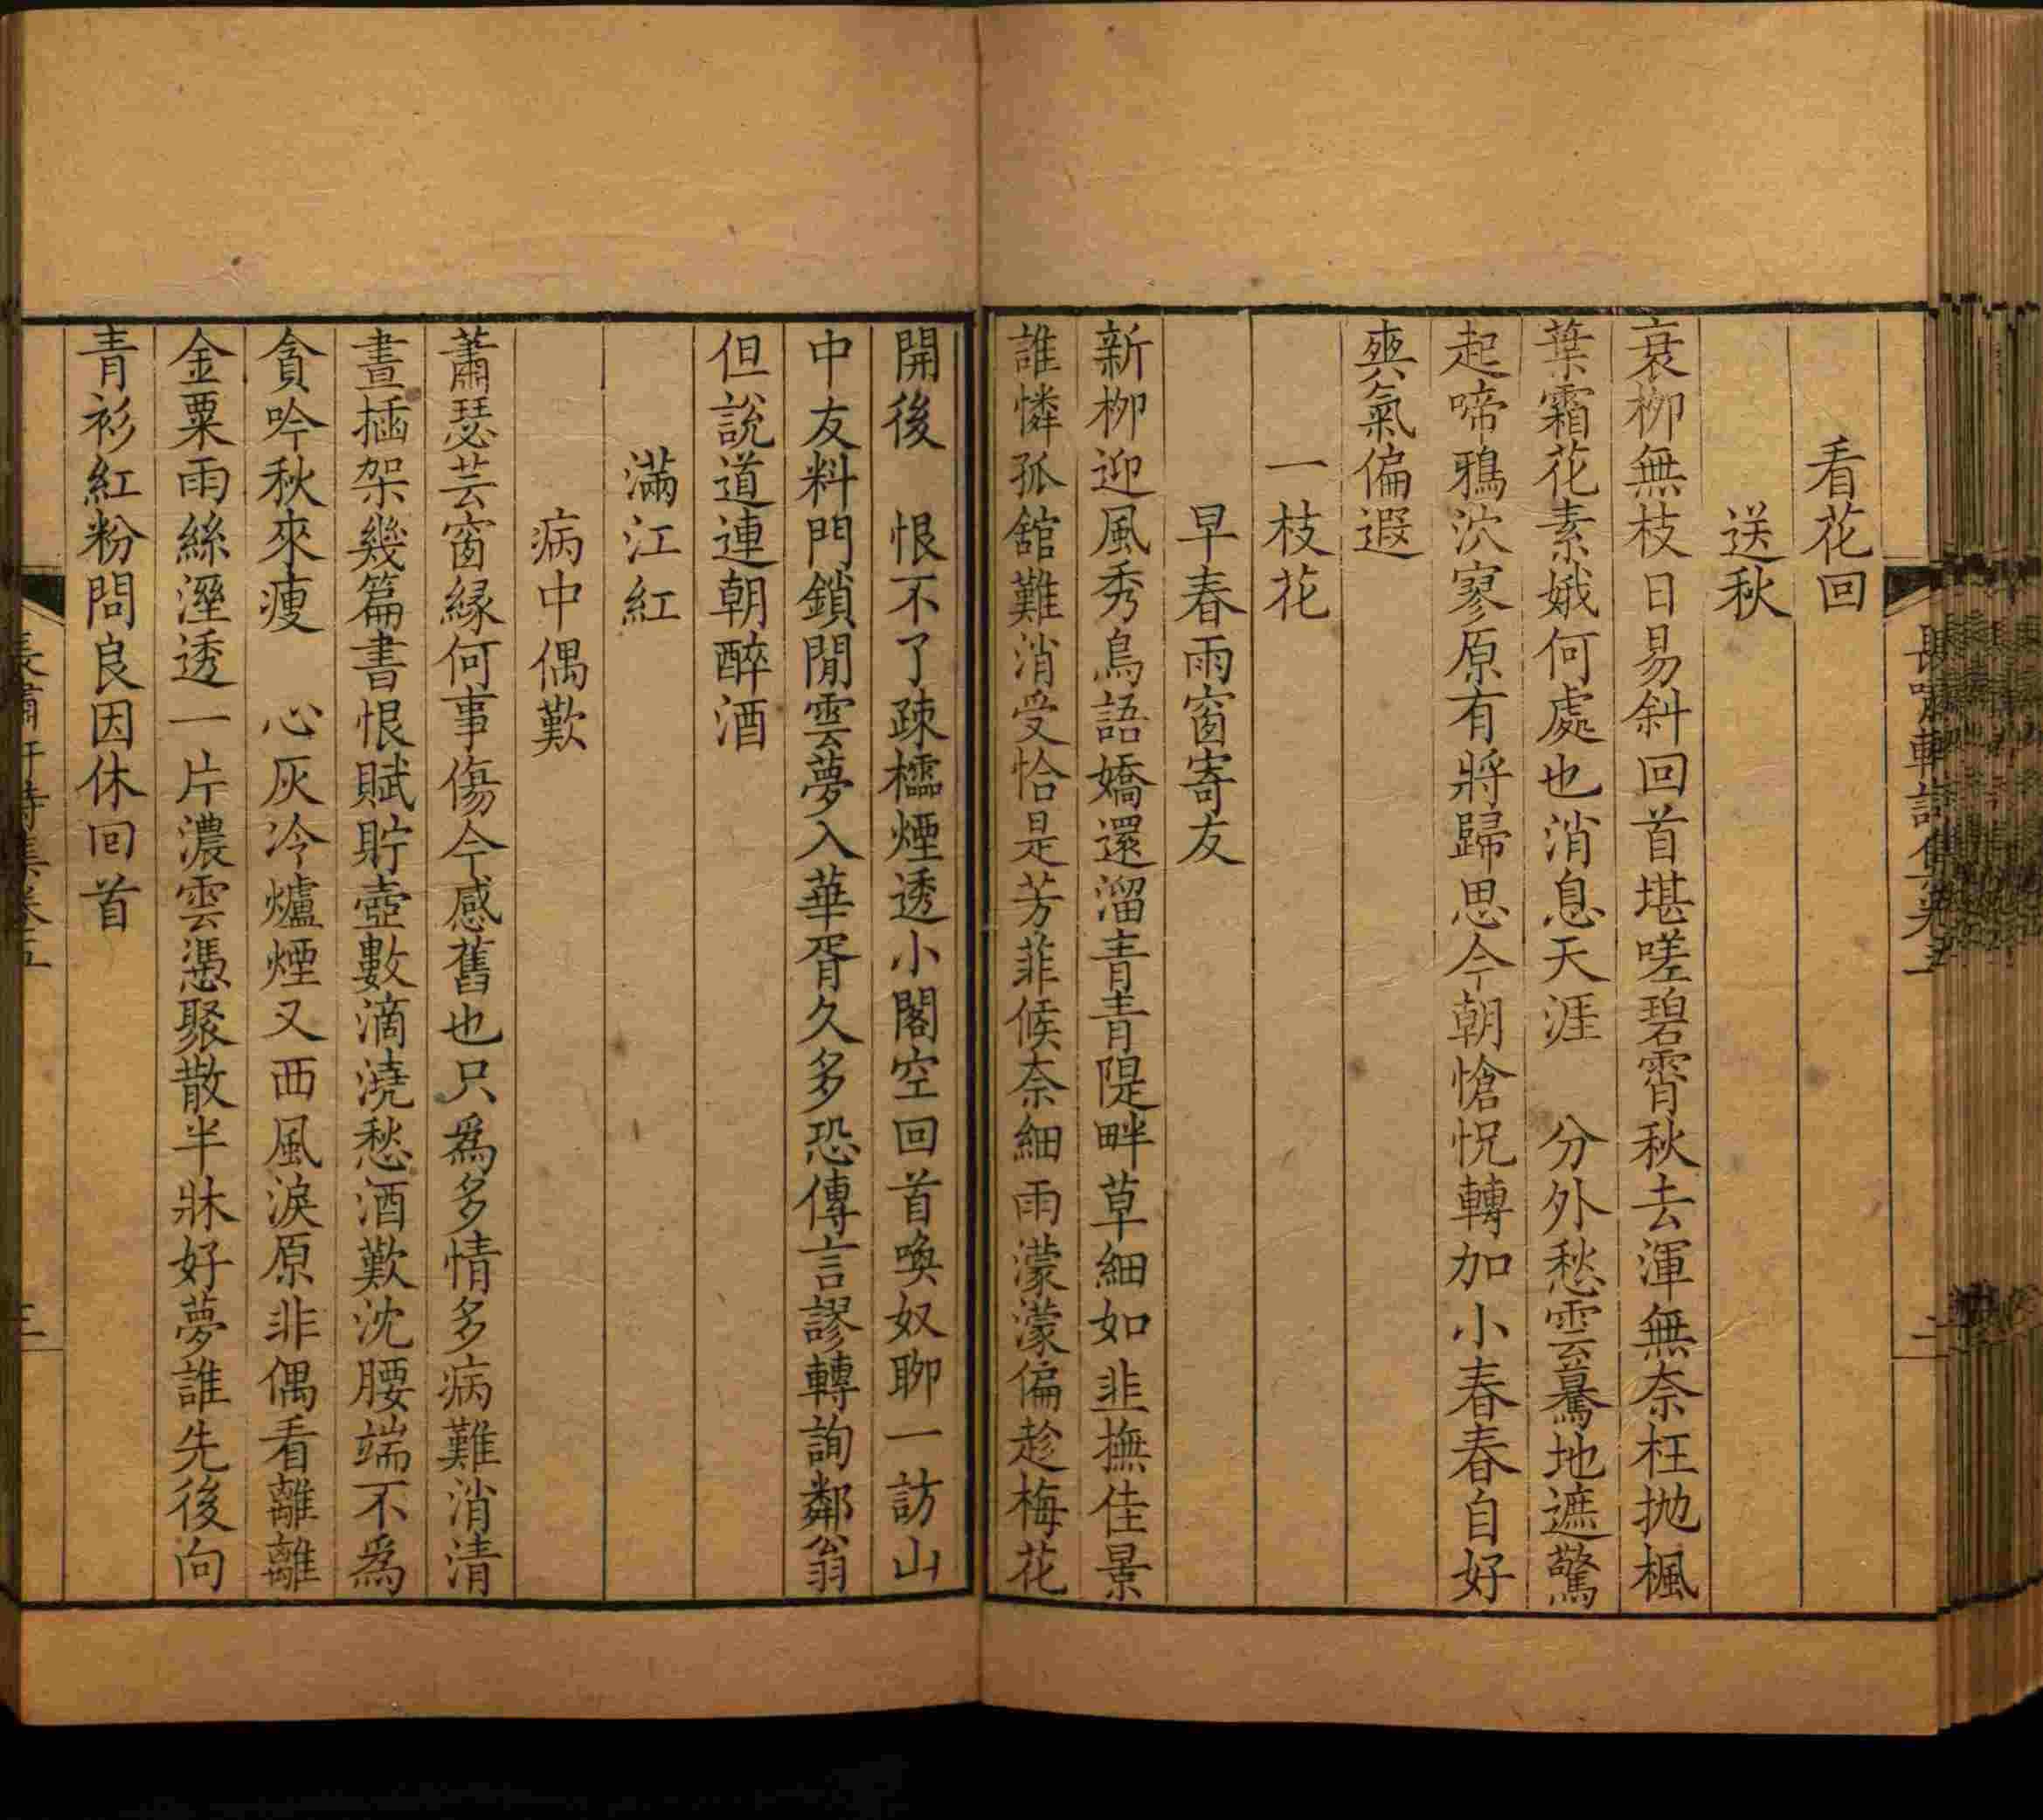 看花回
送秋
衰栁無枝日易斜回首堪嗟碧霄秋去渾無奈枉抛楓
葉霜花素娥何處也消息天涯　分外愁雲驀地遮驚
起啼鴉泬寥原有將歸思今朝愴怳轉加小春春自好
爽氣偏遐
一枝花
早春雨窗寄友
新栁迎風秀鳥語嬌還溜青青隄畔草細如韭撫佳景
誰憐孤舘難消受恰是芳菲候奈細雨濛濛偏趁梅花
開後　恨不了疎櫺煙透小閣空回首喚奴聊一訪山
中友料門鎖閒雲夢入華胥久多恐傳言謬轉詢鄰翁
但說道連朝醉酒
滿江紅
病中偶歎
蕭瑟芸窗緣何事傷今感舊也只爲多情多病難消清
晝插架幾篇書恨賦貯壺數滴澆愁酒歎沈腰端不爲
貪吟秋來瘦　心灰冷爐煙又西風淚原非偶看離離
金粟雨絲溼透一片濃雲憑聚散半牀好夢誰先後向
青衫紅粉問良因休回首